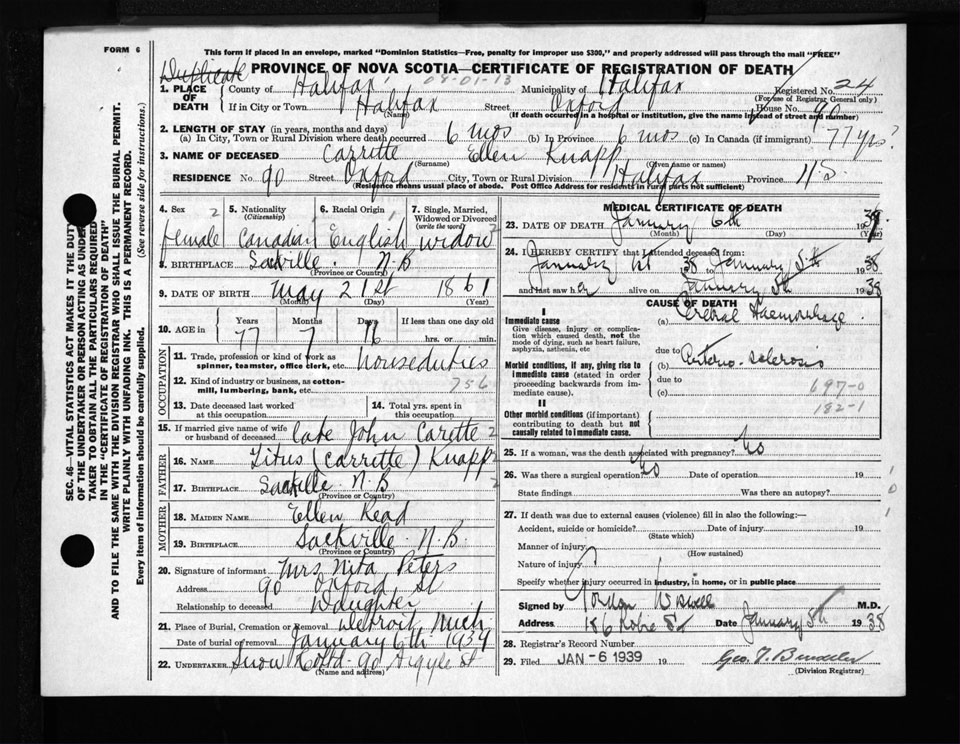 FORM 6
This form if placed in an envelope, marked "Dominion Statistics—Free, penalty for improper use $300," and properly addressed will pass through the mail "FREE"
Duplicate PROVINCE OF NOVA SCOTIA—CERTIFICATE OF REGISTRATION OF DEATH
08-01-13
1. PLACE OF DEATH County of Halifax Municipality of Halifax Registered No. 24
(For use of Registrar General only)
If in City or Town Halifax Street Oxford House No. 90
(Name) (If death occurred in a hospital or institution, give the name instead of street and number)
2. LENGTH OF STAY (in years, months and days)
(a) In City, Town or Rural Division where death occurred 6 mos (b) In Province 6 mos. (c) In Canada (if immigrant) 77 yrs ?
3. NAME OF DECEASED Carritte Ellen Knapp
(Surname) (Given name or names)
RESIDENCE No. 90 Street Oxford City, Town or Rural Division Halifax Province N.S.
(Residence means usual place of abode. Post Office Address for residents in rural parts not sufficient)
SEC. 46—VITAL STATISTICS ACT MAKES IT THE DUTY
OF THE UNDERTAKER OR PERSON ACTING AS UNDER-
TAKER TO OBTAIN ALL THE PARTICULARS REQUIRED
IN THE "CERTIFICATE OF REGISTRATION OF DEATH"
AND TO FILE THE SAME WITH THE DIVISION REGISTRAR WHO SHALL ISSUE THE BURIAL PERMIT.
WRITE PLAINLY WITH UNFADING INK. THIS IS A PERMANENT RECORD.
Every item of information should be carefully supplied. (See reverse side for instructions.)
4. Sex 2 5. Nationality (Citizenship) 6. Racial Origin 7. Single, Married, Widowed or Divorced (write the word)
female Canadian English widow 2
8. BIRTHPLACE Sackville N.B
(Province or Country)
9. DATE OF BIRTH May 21st 1861
(Month) (Day) (Year)
10. AGE in Years Months Days If less than one day old
77 7 16 hrs. or min.
OCCUPATION
11. Trade, profession or kind of work as spinner, teamster, office clerk, etc. houseduties
12. Kind of industry or business, as cotton-mill, lumbering, bank, etc. 756
13. Date deceased last worked at this occupation 14. Total yrs. spent in this occupation
15. If married give name of wife or husband of deceased late John Carette 2
FATHER
16. NAME Titus (Carritte) Knapp 2
17. BIRTHPLACE Sackville N.B 2
(Province or Country)
MOTHER
18. MAIDEN NAME Ellen Read
19. BIRTHPLACE Sackville N.B.
(Province or Country)
20. Signature of informant Mrs Nita Peters
Address 90 Oxford St
Relationship to deceased Daughter
21. Place of Burial, Cremation or Removal Detroit Mich
Date of burial or removal January 6th 1939
22. UNDERTAKER Snow Co Ltd- 90 Argyle St
(Name and address)
MEDICAL CERTIFICATE OF DEATH
23. DATE OF DEATH January 6th 1939
(Month) (Day) (Year)
24. I HEREBY CERTIFY that I attended deceased from:
January 1st 38 to January 5th 1938
and last saw her alive on January 5th 1938
CAUSE OF DEATH
I
Immediate cause
Give disease, injury or complication which caused death, not the mode of dying, such as heart failure, asphyxia, asthenia, etc
(a) Cerebral Haemorrhage
due to
Morbid conditions, if any, giving rise to immediate cause (stated in order proceeding backwards from immediate cause).
(b) Arterio-sclerosis
due to
(c) 697-0
182-1
II
Other morbid conditions (if important) contributing to death but not causally related to immediate cause.
25. If a woman, was the death associated with pregnancy? No
26. Was there a surgical operation? No Date of operation 19
State findings Was there an autopsy?
27. If death was due to external causes (violence) fill in also the following:—
Accident, suicide or homicide? Date of injury 19
(State which)
Manner of injury
(How sustained)
Nature of injury
Specify whether injury occurred in industry, in home, or in public place
Signed by Gordon Wiswell M.D.
Address 186 Robie St Date January 5th 1938
28. Registrar's Record Number
29. Filed JAN -6 1939 19
(Division Registrar)